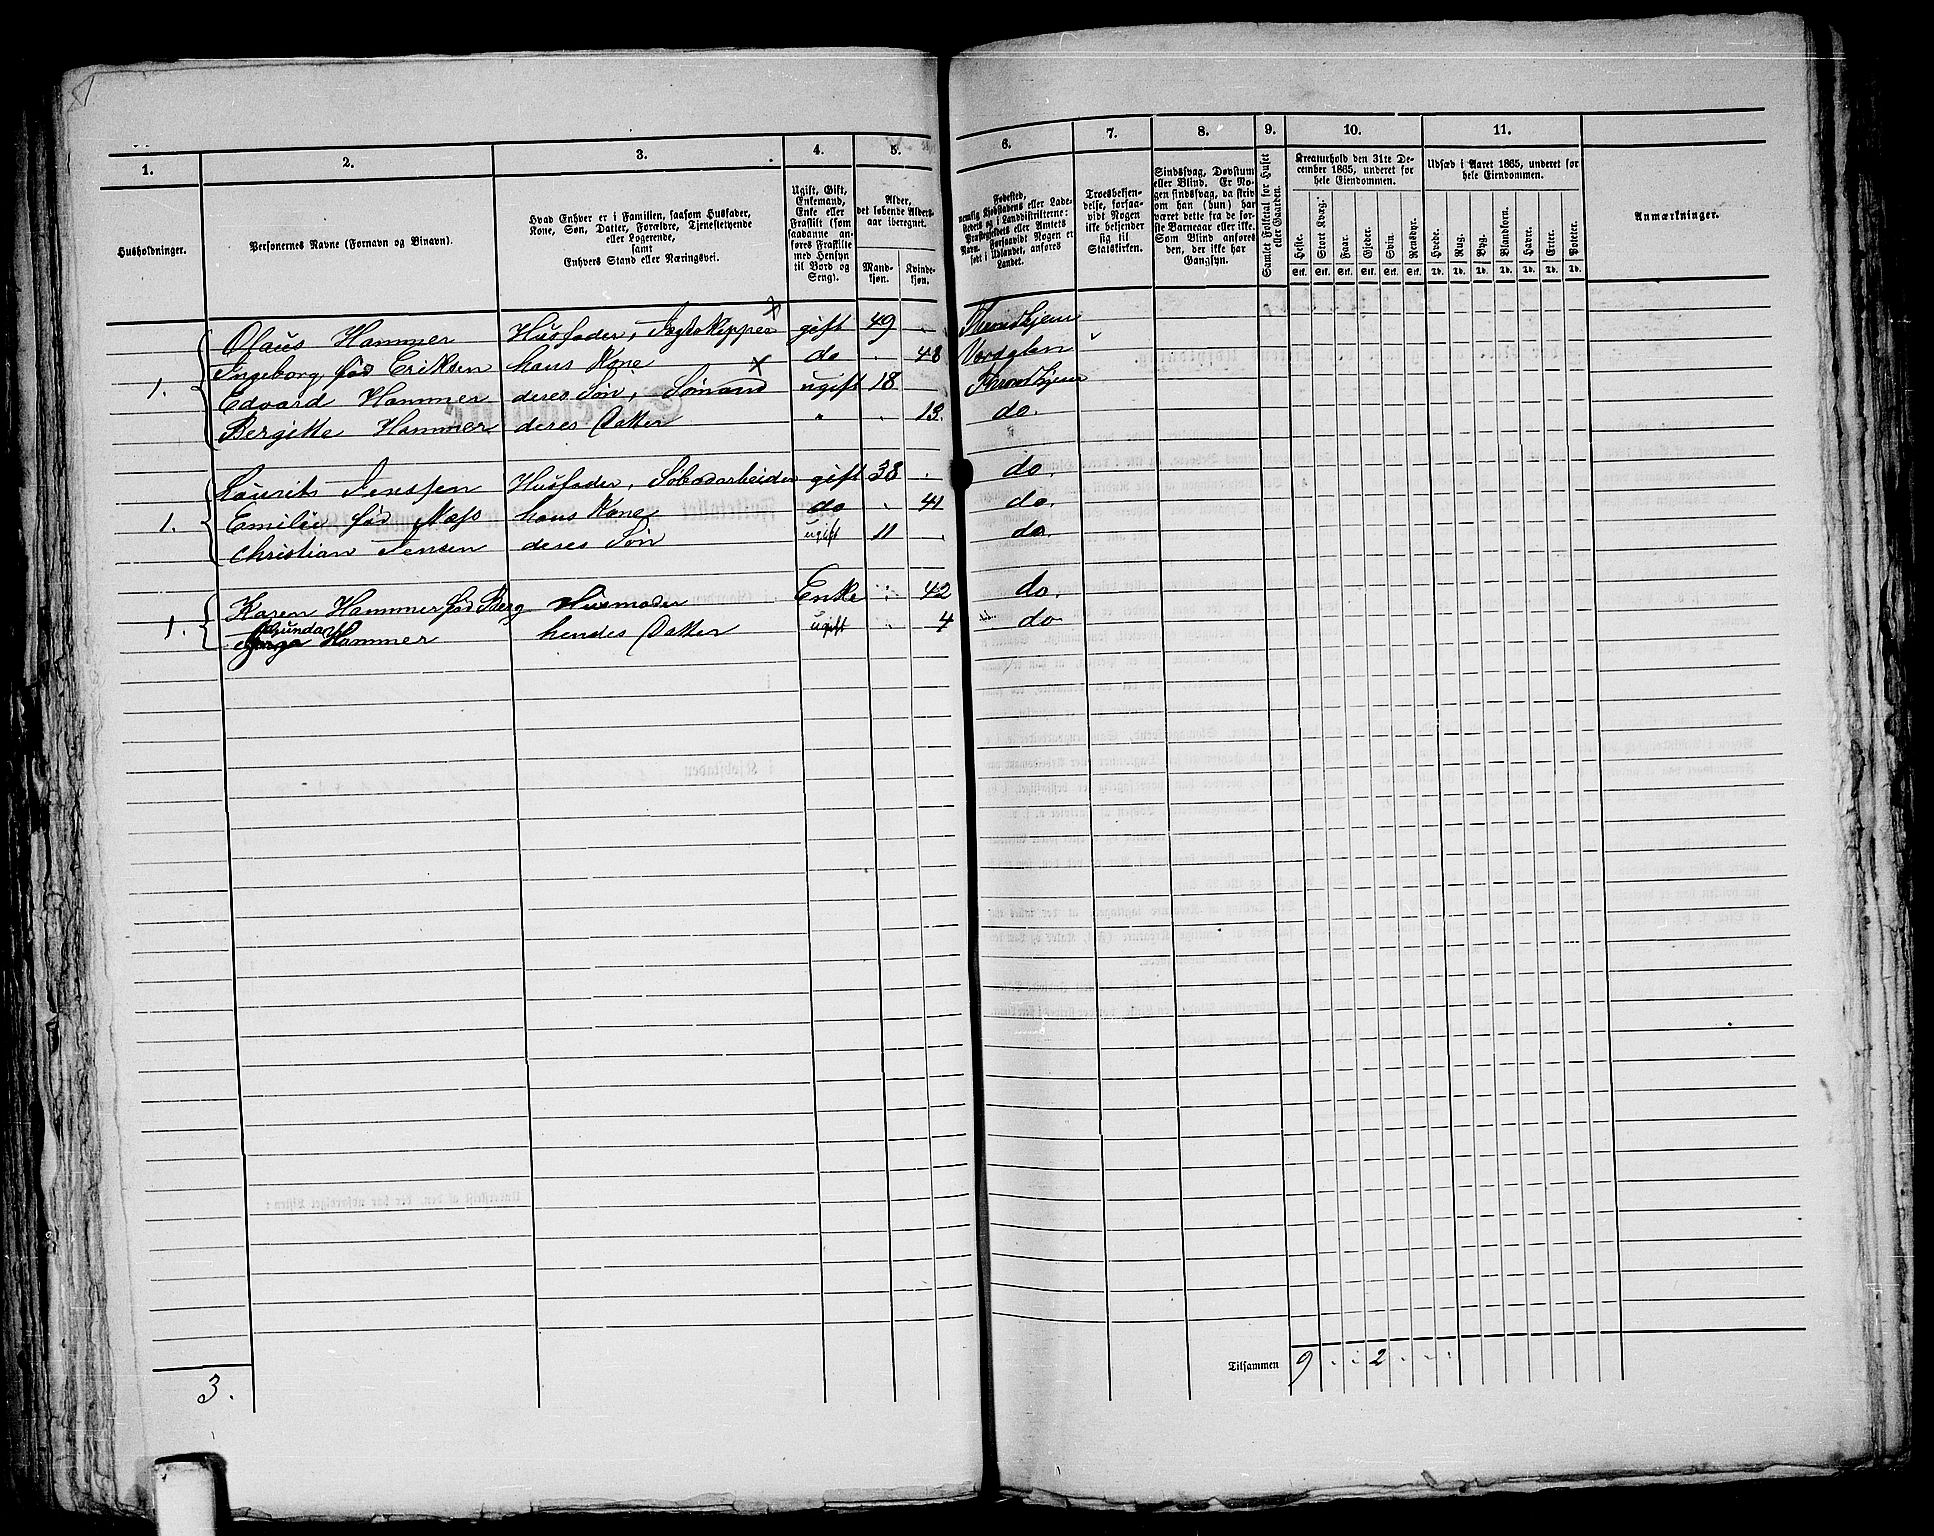 1.
2.
3.
4.
5.
6.
7.
8.
9.
10.
11.
Husholdninger.
Personernes Navne (Fornavn og Binavn).
Hvad Enhver er i Familien, saasom Husfader,
Kone, Søn, Datter, Forældre, Tjenestetyende
eller Logerende,
samt
Enhvers Stand eller Næringsvei.
Ugift, Gift,
Enkemand,
Enke eller
Fraskilt (som
saadanne an-
føres Fraskilte
med Hensyn
til Bord og
Seng).
Alder,
det løbende Alders-
aar iberegnet.
Mand-
kjøn.
Kvinde-
kjøn.
Fødested,
nemlig Kjøbstadens eller Lade-
stedets og i Landdistrikterne:
Præstegjeldets eller Amtets
Navn. Forsaavidt Nogen er
født i Udlandet, anføres
Landet.
Troesbekjen-
delse, forsaa-
vidt Nogen
ikke bekjender
sig til
Statskirken.
Sindssvag, Døvstum
eller Blind. Er No-
gen sindssvag, da skriv
om han (hun) har
været dette fra de før-
ste Barneaar eller ikke.
Som Blind anføres
den, der ikke har
Gangsyn.
Samlet Folketal for Huset
eller Gaarden.
Kreaturhold den 31te De-
cember 1865, underet for
hele Eiendommen.
Heste.
Stort Kvæg.
Faar.
Gjeder.
Svin.
Rensdyr.
Stk. Stk. Stk. Stk. Stk. Stk.
Udsæd i Aaret 1865, underet for
hele Eiendommen.
Hvede.
Rug.
Byg.
Blandkorn.
Havre.
Erter.
Poteter.
Td. Td. Td. Td. Td. Td. Td.
Anmærkninger.
Olaus Hammer Husfader, Jægtskipper gift 49 Throndhjem
Ingeborg, fød Eriksen hans Kone do 48
1. Edvard Hammer deres Søn, Sømand ugift 18 Throndhjem
Bergitte Hammer deres Datter " 13. do.
Laurits Jenssen Husfader, gift 38 do.
1. Emilie fød Næss hans Kone do 41 do.
Christian Jensen deres Søn ugift 11 do.
Karen Hammer fød Berg Husmoder Enke 42 do.
1. Hammer hendes Datter ugift 4 do
Tilsammen 9 2
3.